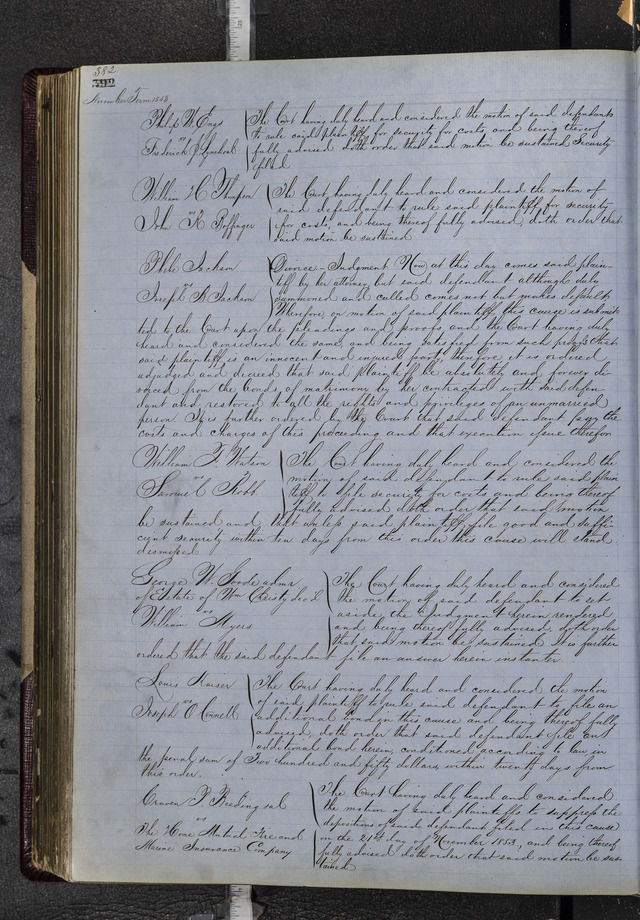 382
November Term 1853
Philip W. Engs
vs
Frederick J.
The Court having duly heard and considered the motion of said defendants
to rule said plaintiff for security for costs, and being thereof
fully advised doth order that said motion be sustained Security
filed
William H C Thompson
vs
John R Boffinger
The Court having duly heard and considered the motion of
said defendant to rule said plaintiff for security
for costs, and being thereof fully advised, doth order that
said motion be sustained
Phebe Jackson
vs
Joseph R Jackson
Divorce - Judgment Now at this day comes said plain-
tiff by her attorney but said defendant although duly
summoned and called comes not but makes default
Wherefore, on motion of said plaintiff this cause is submit
ted to the Court upon the pleadings and proofs, and the Court having duly
heard and considered the same, and being satisfied from such proofs that
said plaintiff is an innocent and injured party therefore it is ordered
adjudged and decreed that said plaintiff be absolutely and forever di-
vorced from the bonds of matrimony by her contracted with said defen
dant and restored to all the rights and privileges of an unmarried
person. It is further ordered by the Court that said defendant pay the
costs and charges of this proceeding and that execution issue therefor
William F. Watson
vs
Samuel C Robb
The Court having duly heard and considered the
motion of said defendant to rule said plain
tiff to file security for costs and being thereof
fully advised doth order that said motion
be sustained and that unless said plaintiff file good and suffi
cient security within ten days from this order this cause will stand
dismissed
George W. Goode admr
of Estate of Wm Christy, decd
vs
William Myers
The Court having duly heard and considered
the motion of said defendant to set
aside the Judgment herein rendered
and being thereof fully advised, doth order
that said motion be sustained It is further
ordered that the said defendant file an answer herein instanter
Louis Kaiser
vs
Joseph O Connell
The Court having duly heard and considered the motion
of said plaintiff to rule said defendant to file an
additional bond in this cause and being thereof fully
advised, doth order that said defendant file an
additional bond herein, conditioned according to law in
the penal sum of Two hundred and fifty dollars, within twenty days from
this order.
Craven P et al
vs
The Home Mutual Fire and
Marine Insurance Company
The Court having duly heard and considered
the motion of said plaintiffs to suppress the
depositions of said defendant filed in this cause
on the 21st day of November 1853, and being thereof
fully advised doth order that said motion be sus
tained